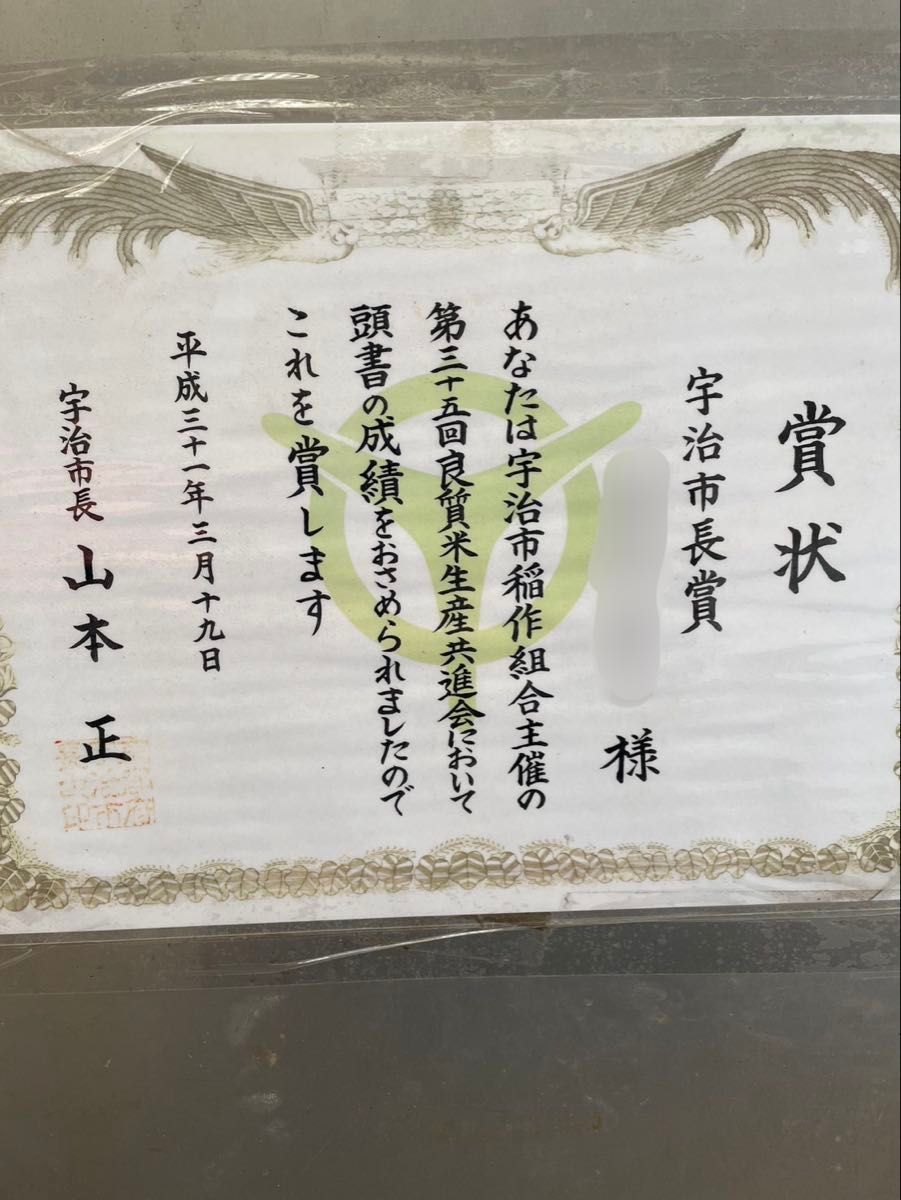 賞状
宇治市長賞
様
あなたは宇治市稲作組合主催の
第三十五回良質米生産共進会において
頭書の成績をおさめられましたので
これを賞します
平成三十一年三月十九日
宇治市長 山本 正